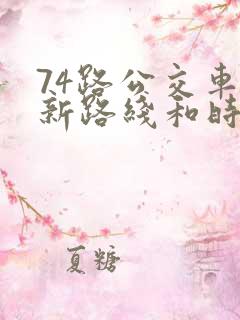 74路公交车
新路綫和時
夏糖